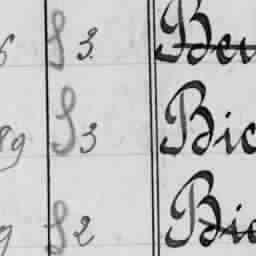 6 S 3. Beu
89 S 3 Bic
9 S 2 Bie